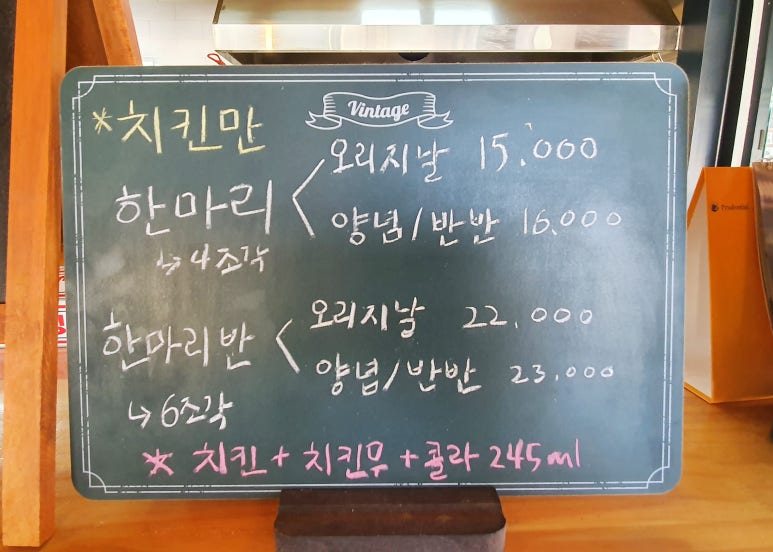 Vintage
*치킨만
한마리 < 오리지날 15.000
양념/반반 16.000
↳ 4조각
한마리반 < 오리지날 22.000
양념/반반 23.000
↳ 6조각
* 치킨 + 치킨무 + 콜라 245ml
Prudential